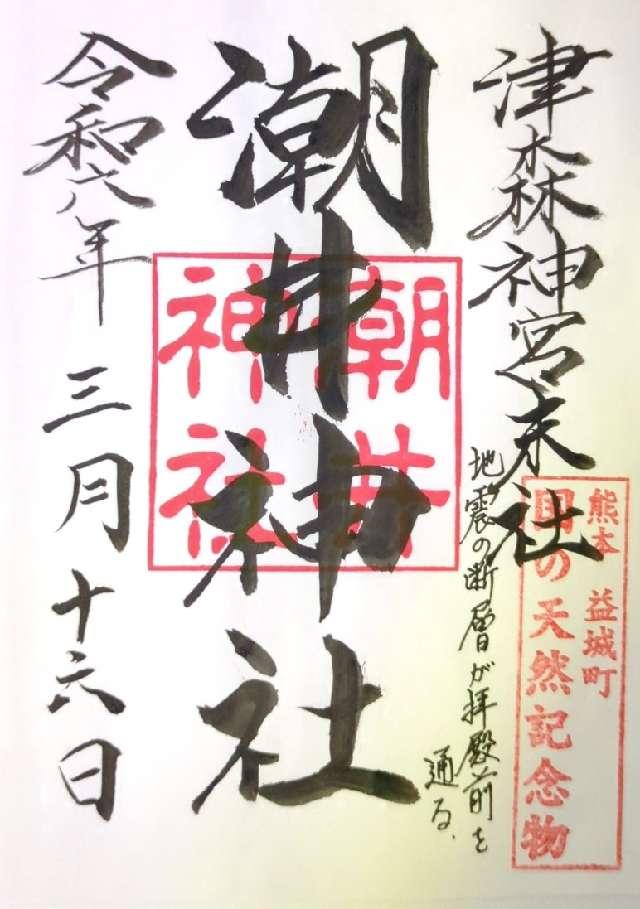 津森神宮末社
熊本 益城町
国の天然記念物
地震の断層が拝殿前を
通る.
潮井神社
潮井
神社
令和六年 三月十六日